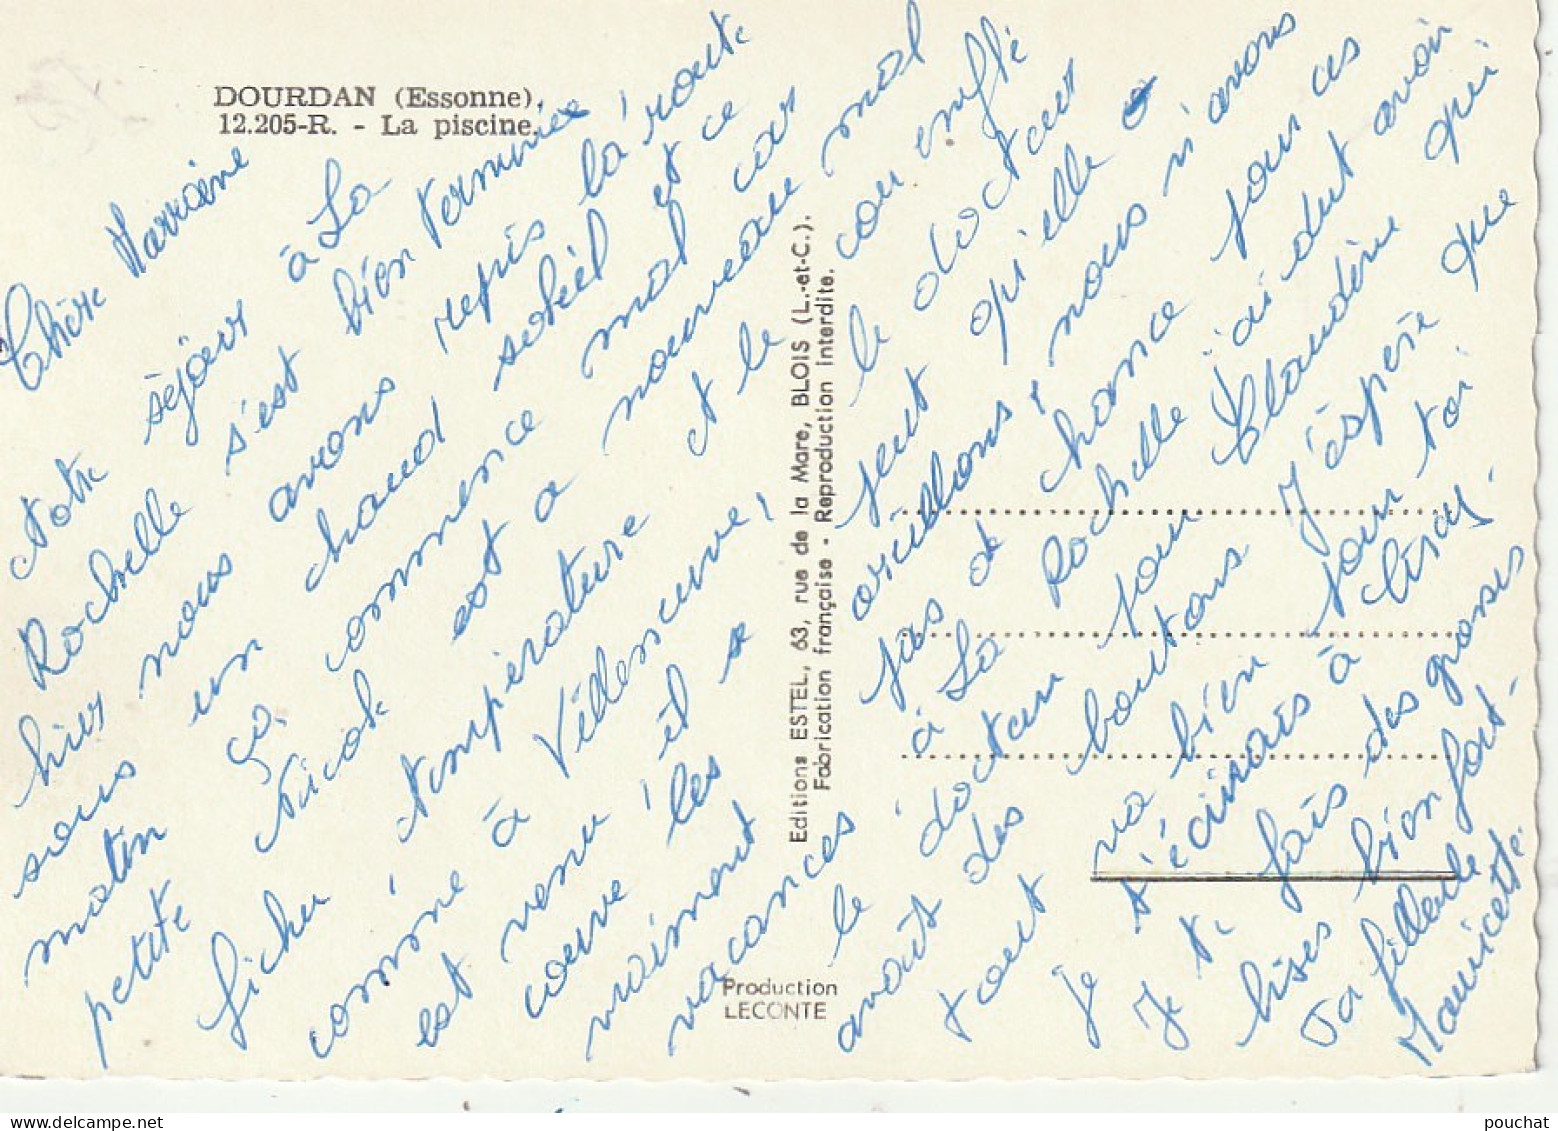 DOURDAN (Essonne).
12.205-R. - La piscine.
Chère Marraine
Notre séjour à La
Rochelle s'est bien terminé
hier nous avons repris la route
sous un chaud soleil et ce
matin ça commence mal car
petite Nicole est a nouveau mal
fichu, température et le cou enflé
comme à Villeneuve, le docteur
est venu il se peut qu'elle
couve les oreillons, nous n'avons
vraiment pas de chance pour ces
vacances à La Rochelle j'ai dut avoir
le docteur pour Claudine qui
avait des boutons J'espère que
tout va bien pour toi
Je t'écirais à
Je te fais des grosses
bises bien fort.
Ta filleule
Mauricette
Editions ESTEL, 63, rue de la Mare, BLOIS (L.-et-C.).
Fabrication française - Reproduction interdite.
Production
LECONTE
www.delcampe.net
pouchat